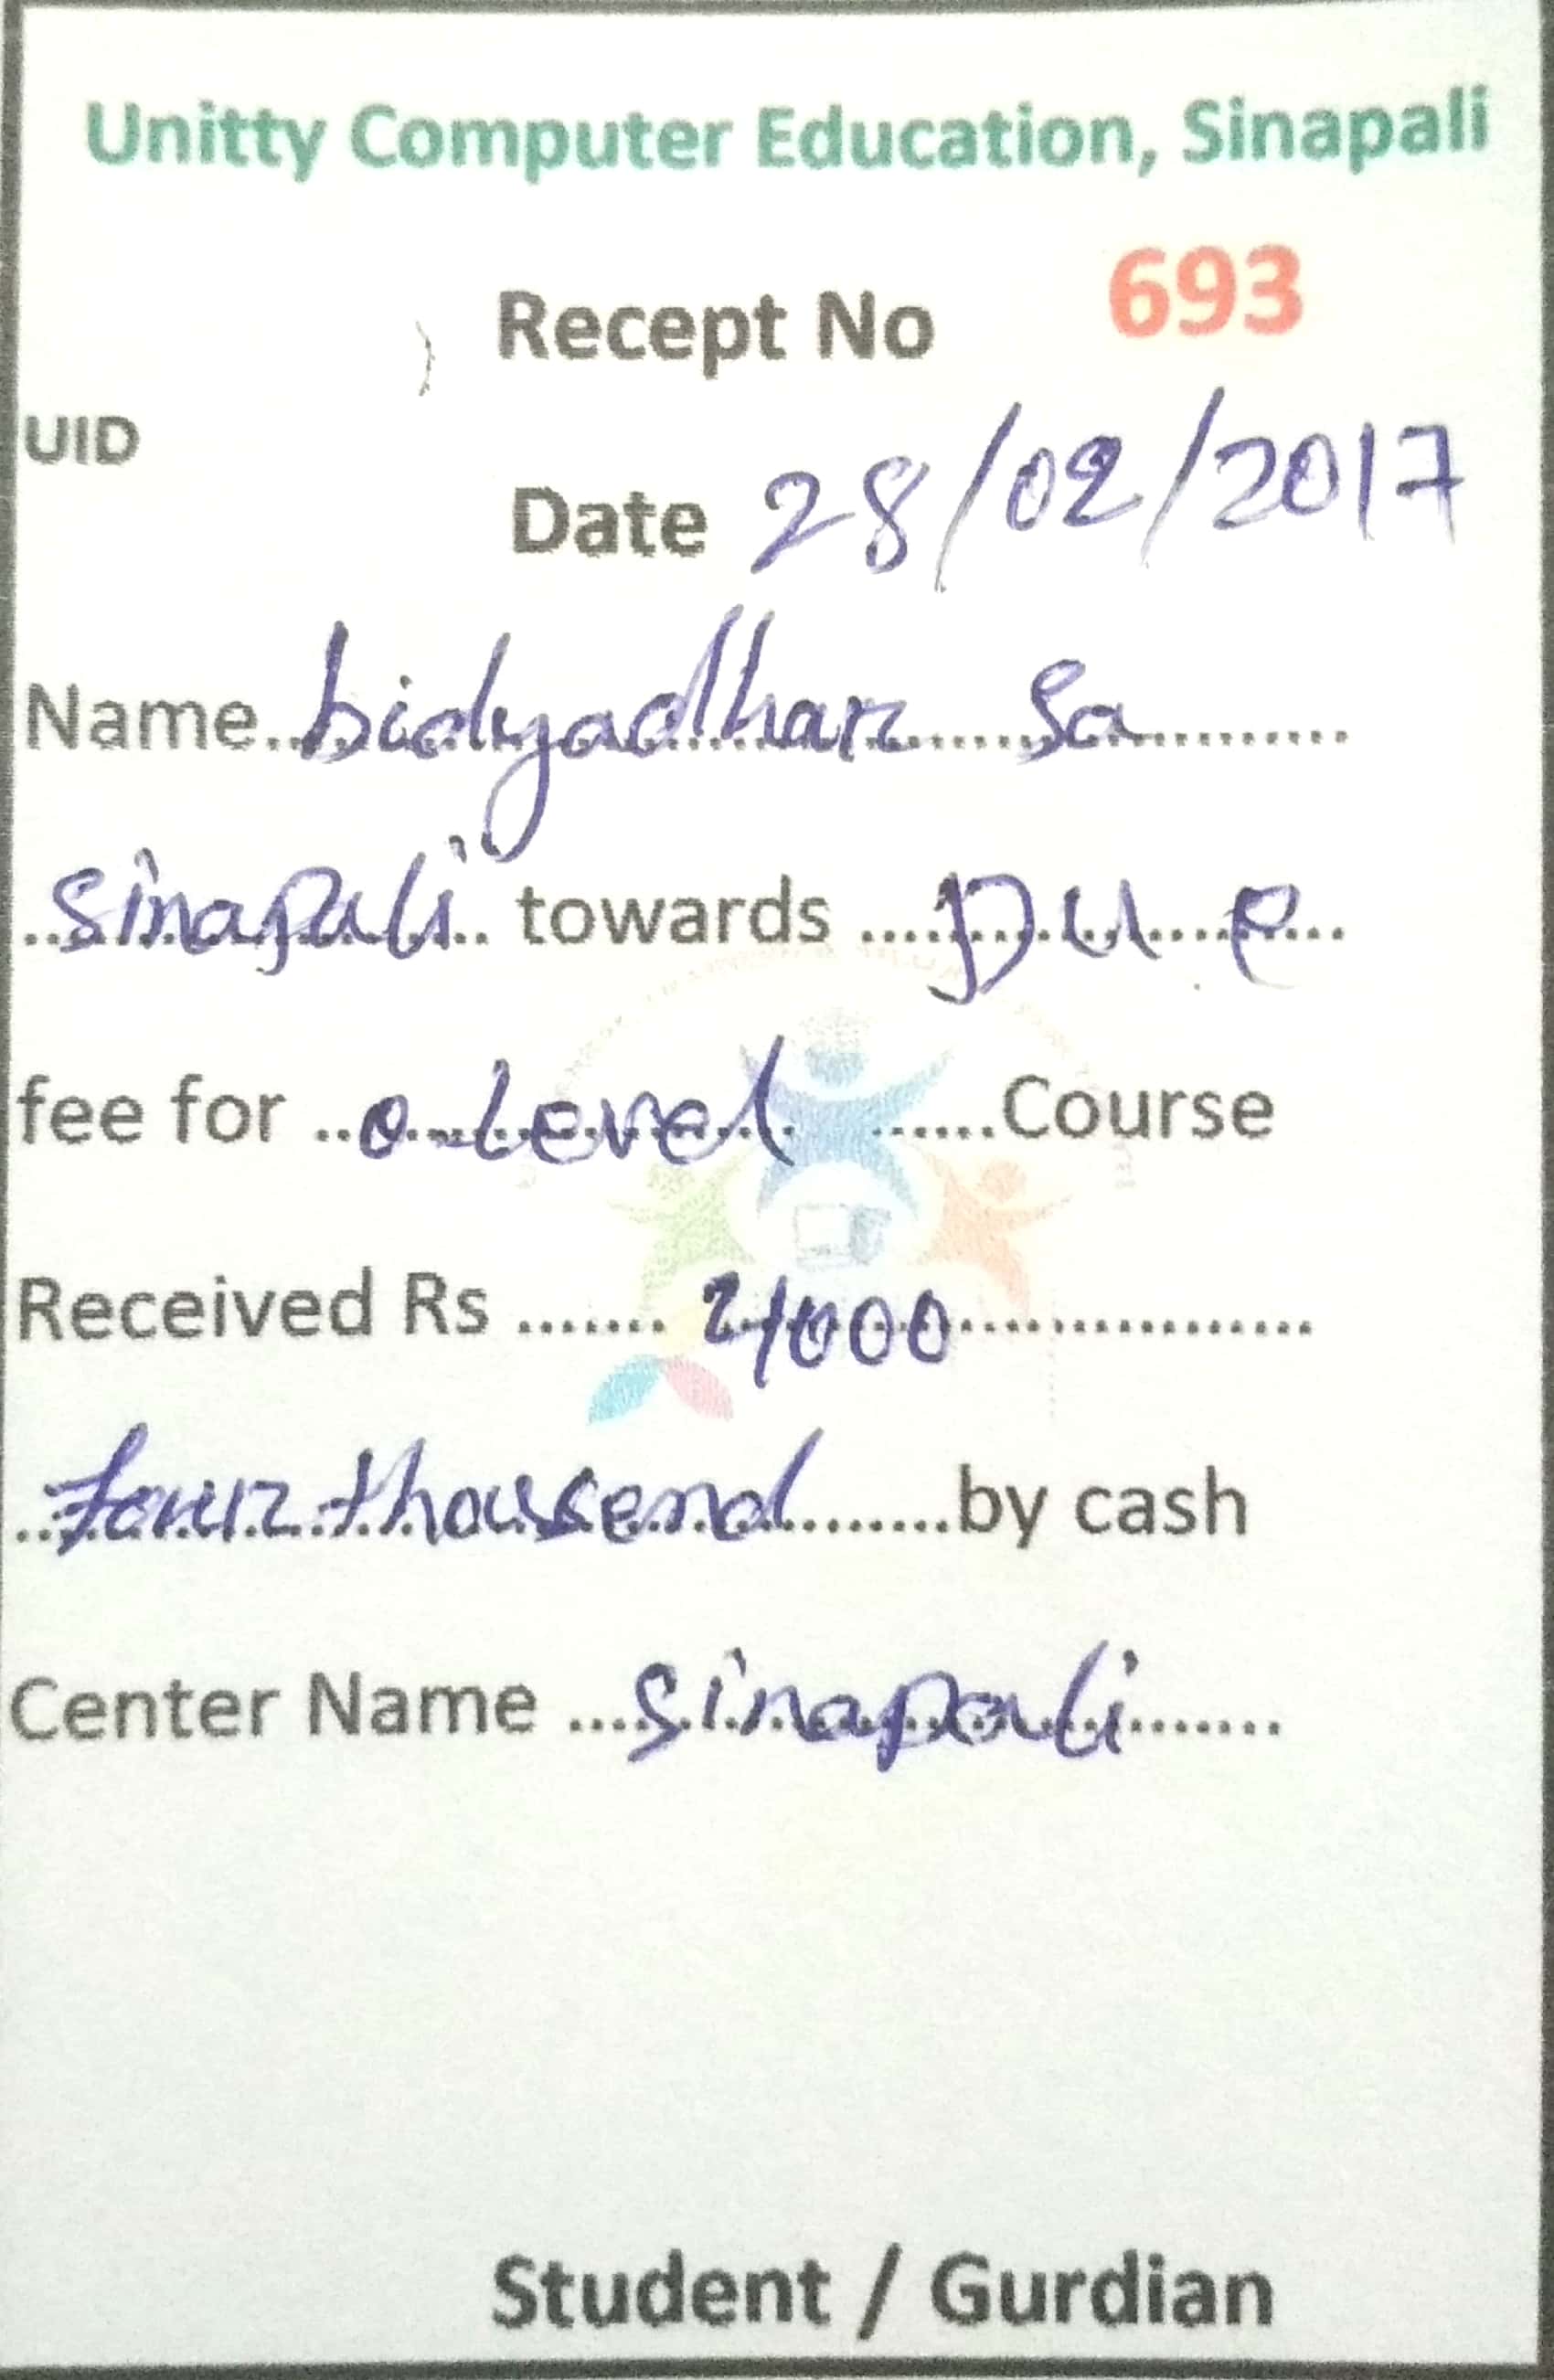 Unitty Computer Education, Sinapali
Recept No 693
UID
Date 28/02/2017
Name bidyadhar Sa
Sinapali towards Due
fee for o Level Course
Received Rs 4000
four thousend by cash
Center Name Sinapali
Student / Gurdian